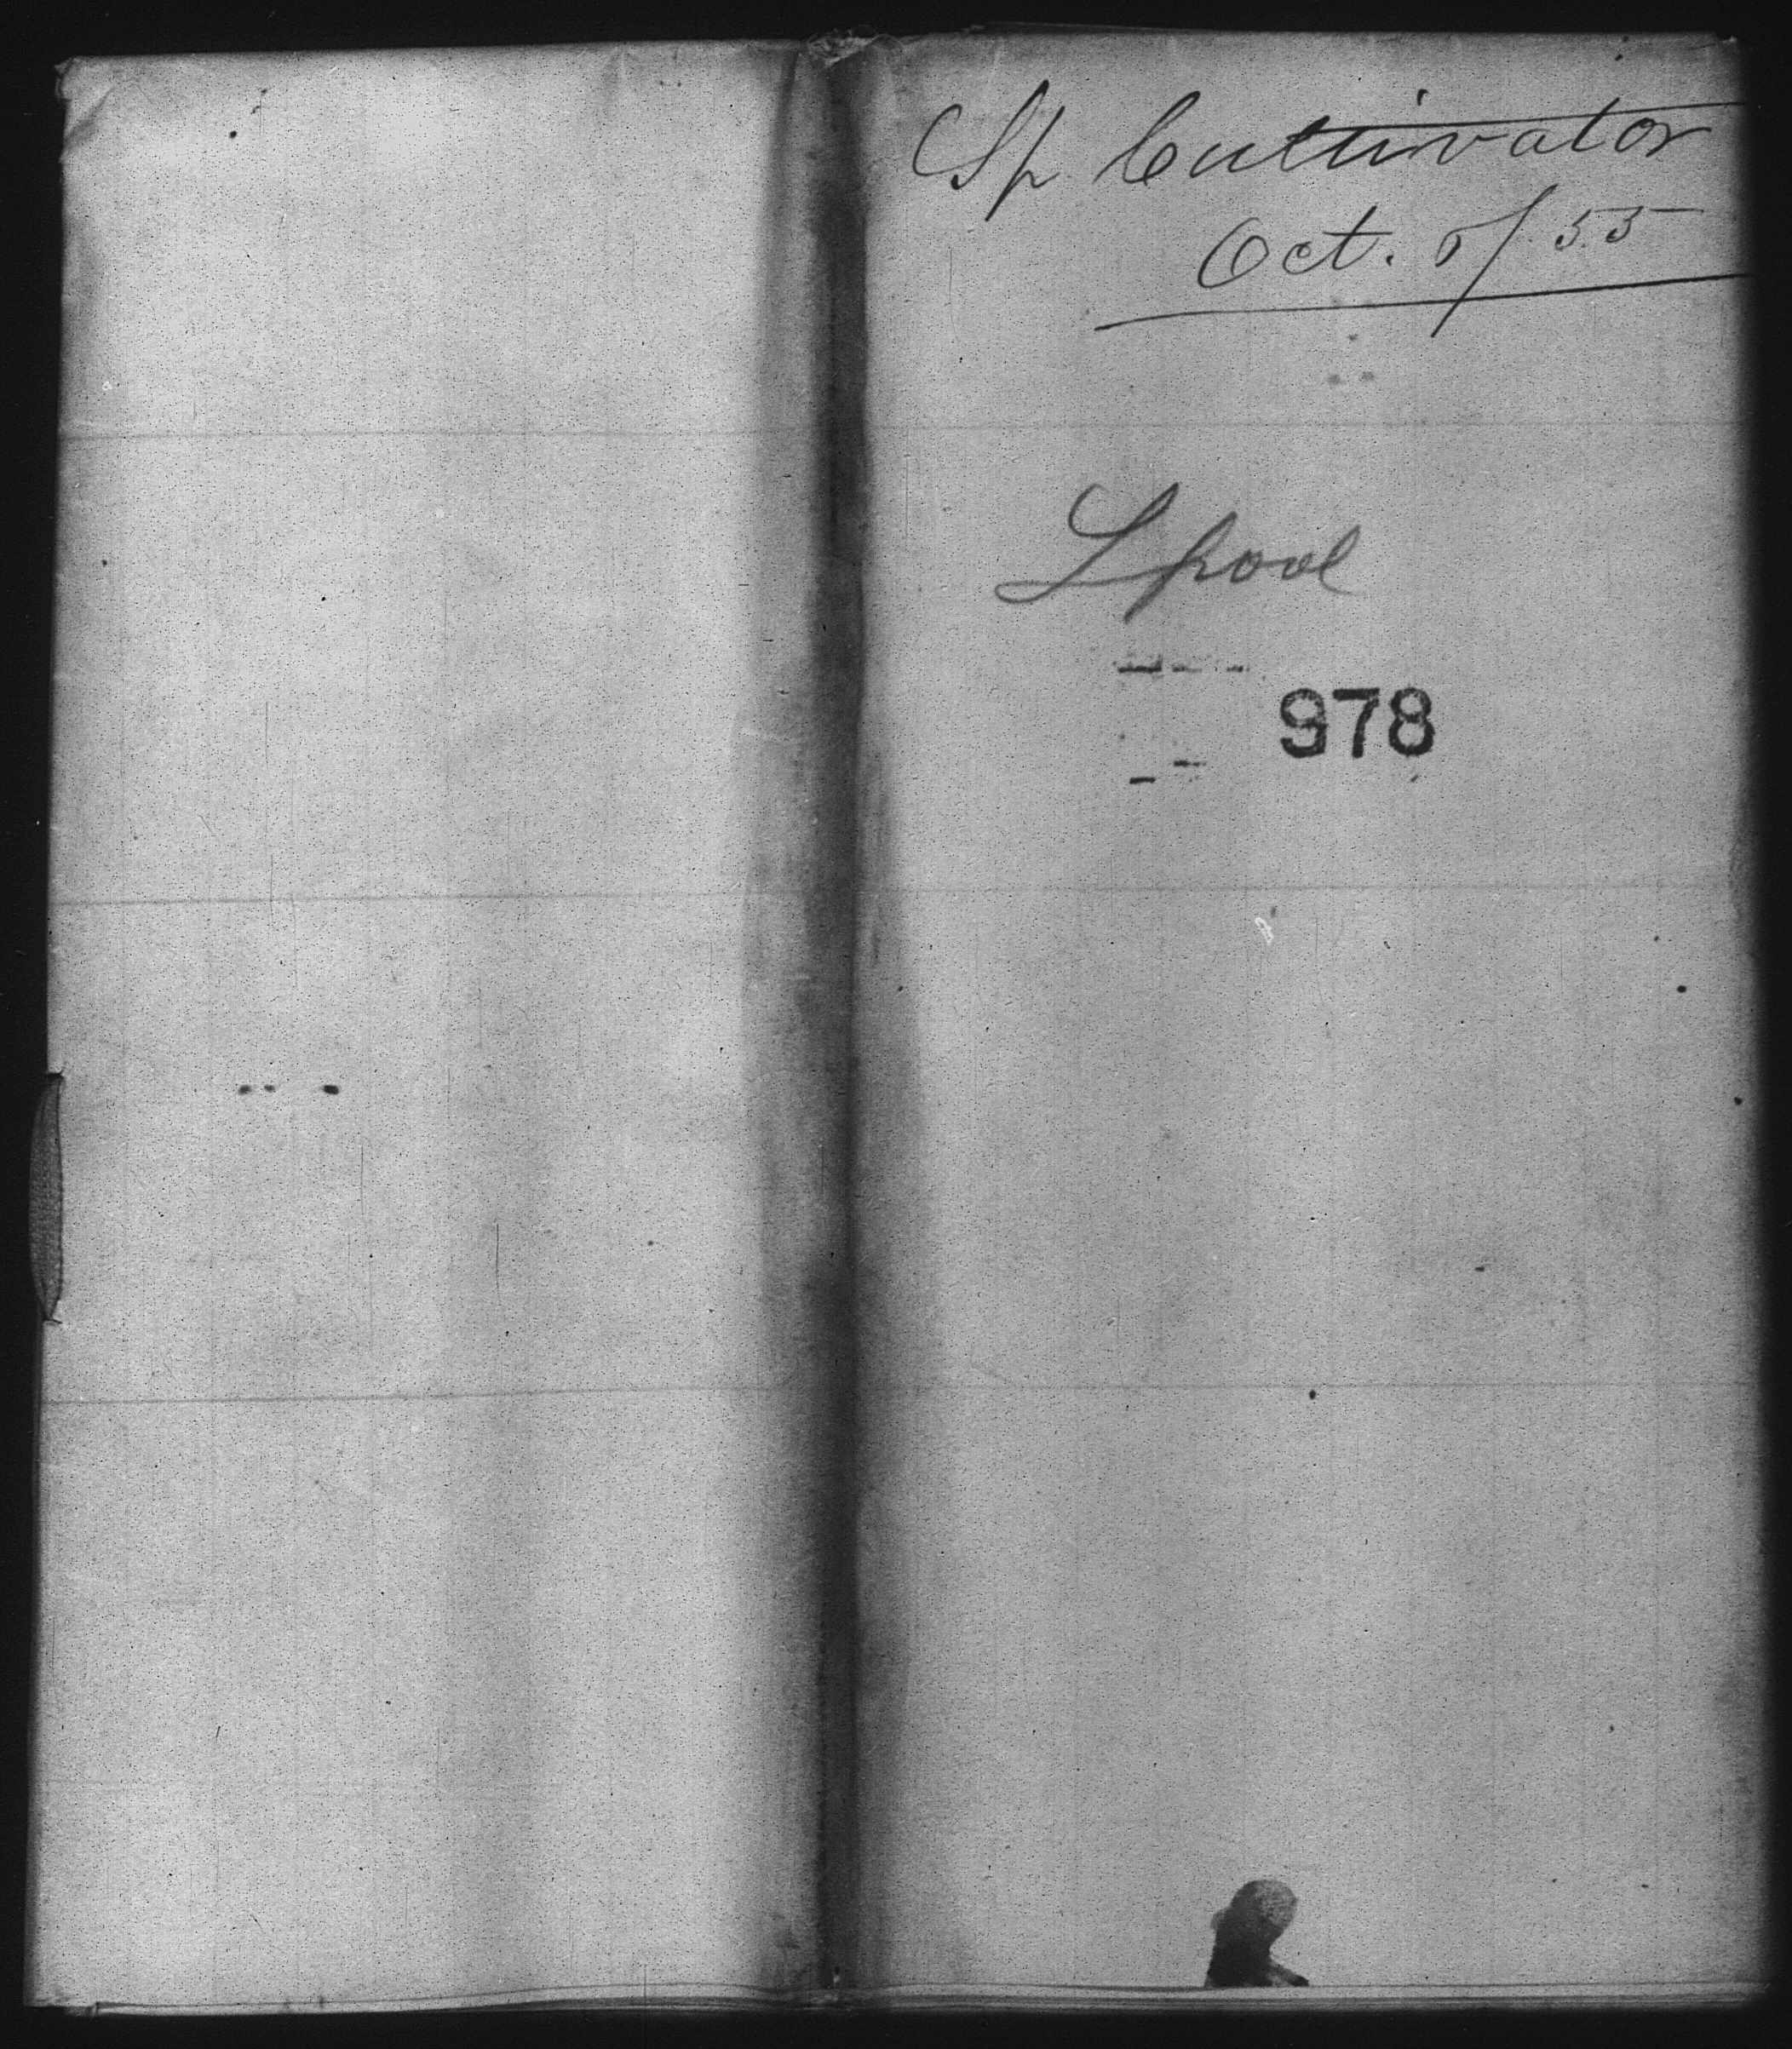 Sp Cultivator
Oct. 5/55
Lpool
978